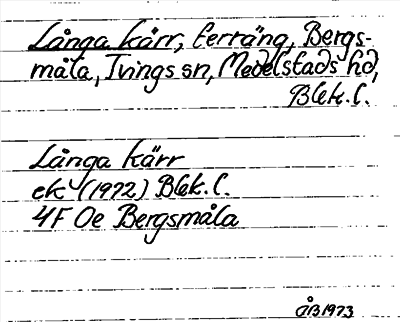 Långa kärr, terräng, Bergs-
måla, Tvings sn, Medelstads hd,
Blek. l.
Långa kärr
ek (1972) Blek. l.
4F 0e Bergsmåla
ÅB 1973